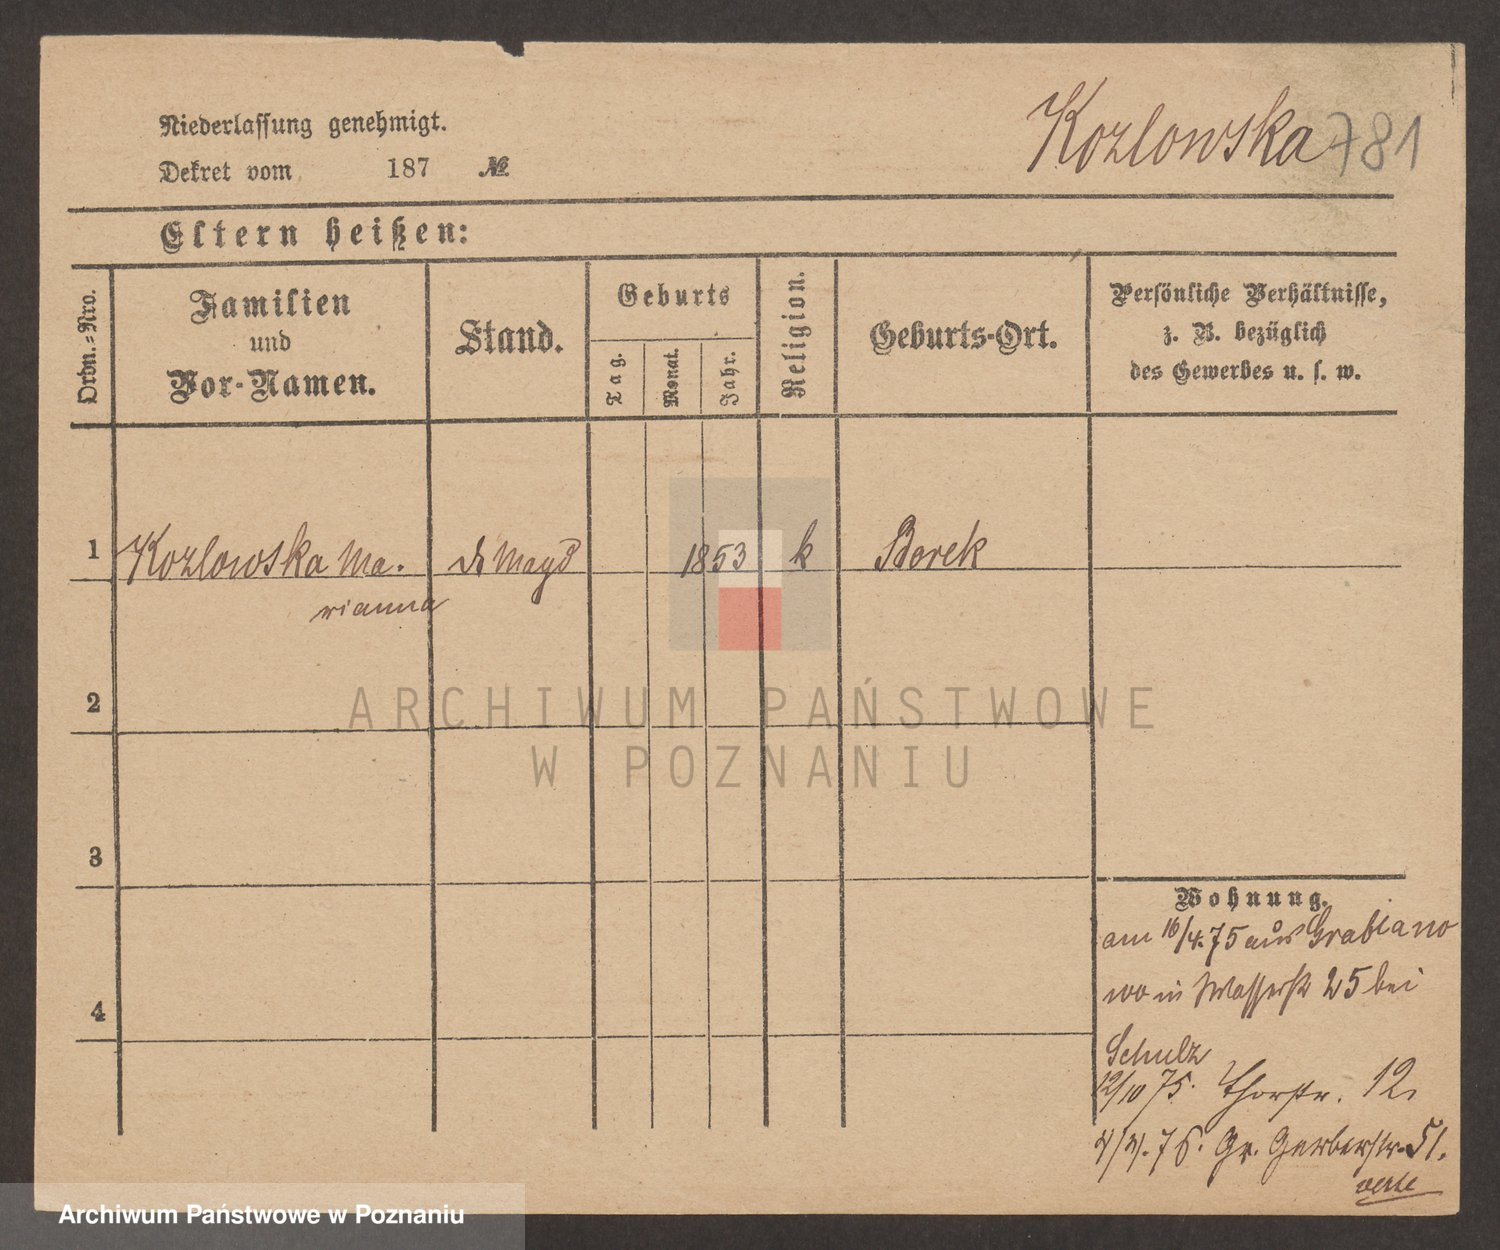 Niederlassung genehmigt.
Kozlowska 781
Dekret vom 187 №
Eltern heißen:
Ordn.=Nro.
Familien
und
Vor-Namen.
Stand.
Geburts
Tag.
Monat.
Jahr.
Religion.
Geburts-Ort.
Persönliche Verhältnisse,
z. B. bezüglich
des Gewerbes u. s. w.
1 Kozlowska Ma. Magd 1853 k Borek
rianna
2
ARCHIWUM PAŃSTWOWE
W POZNANIU
3
4
Wohnung.
am 16/4.75 aus Grabianowo
wo in Wasserstr 25 bei
Schulz
12/10 75. Thorstr. 12.
76. Gr. Gerberstr. 51.
verte
Archiwum Państwowe w Poznaniu